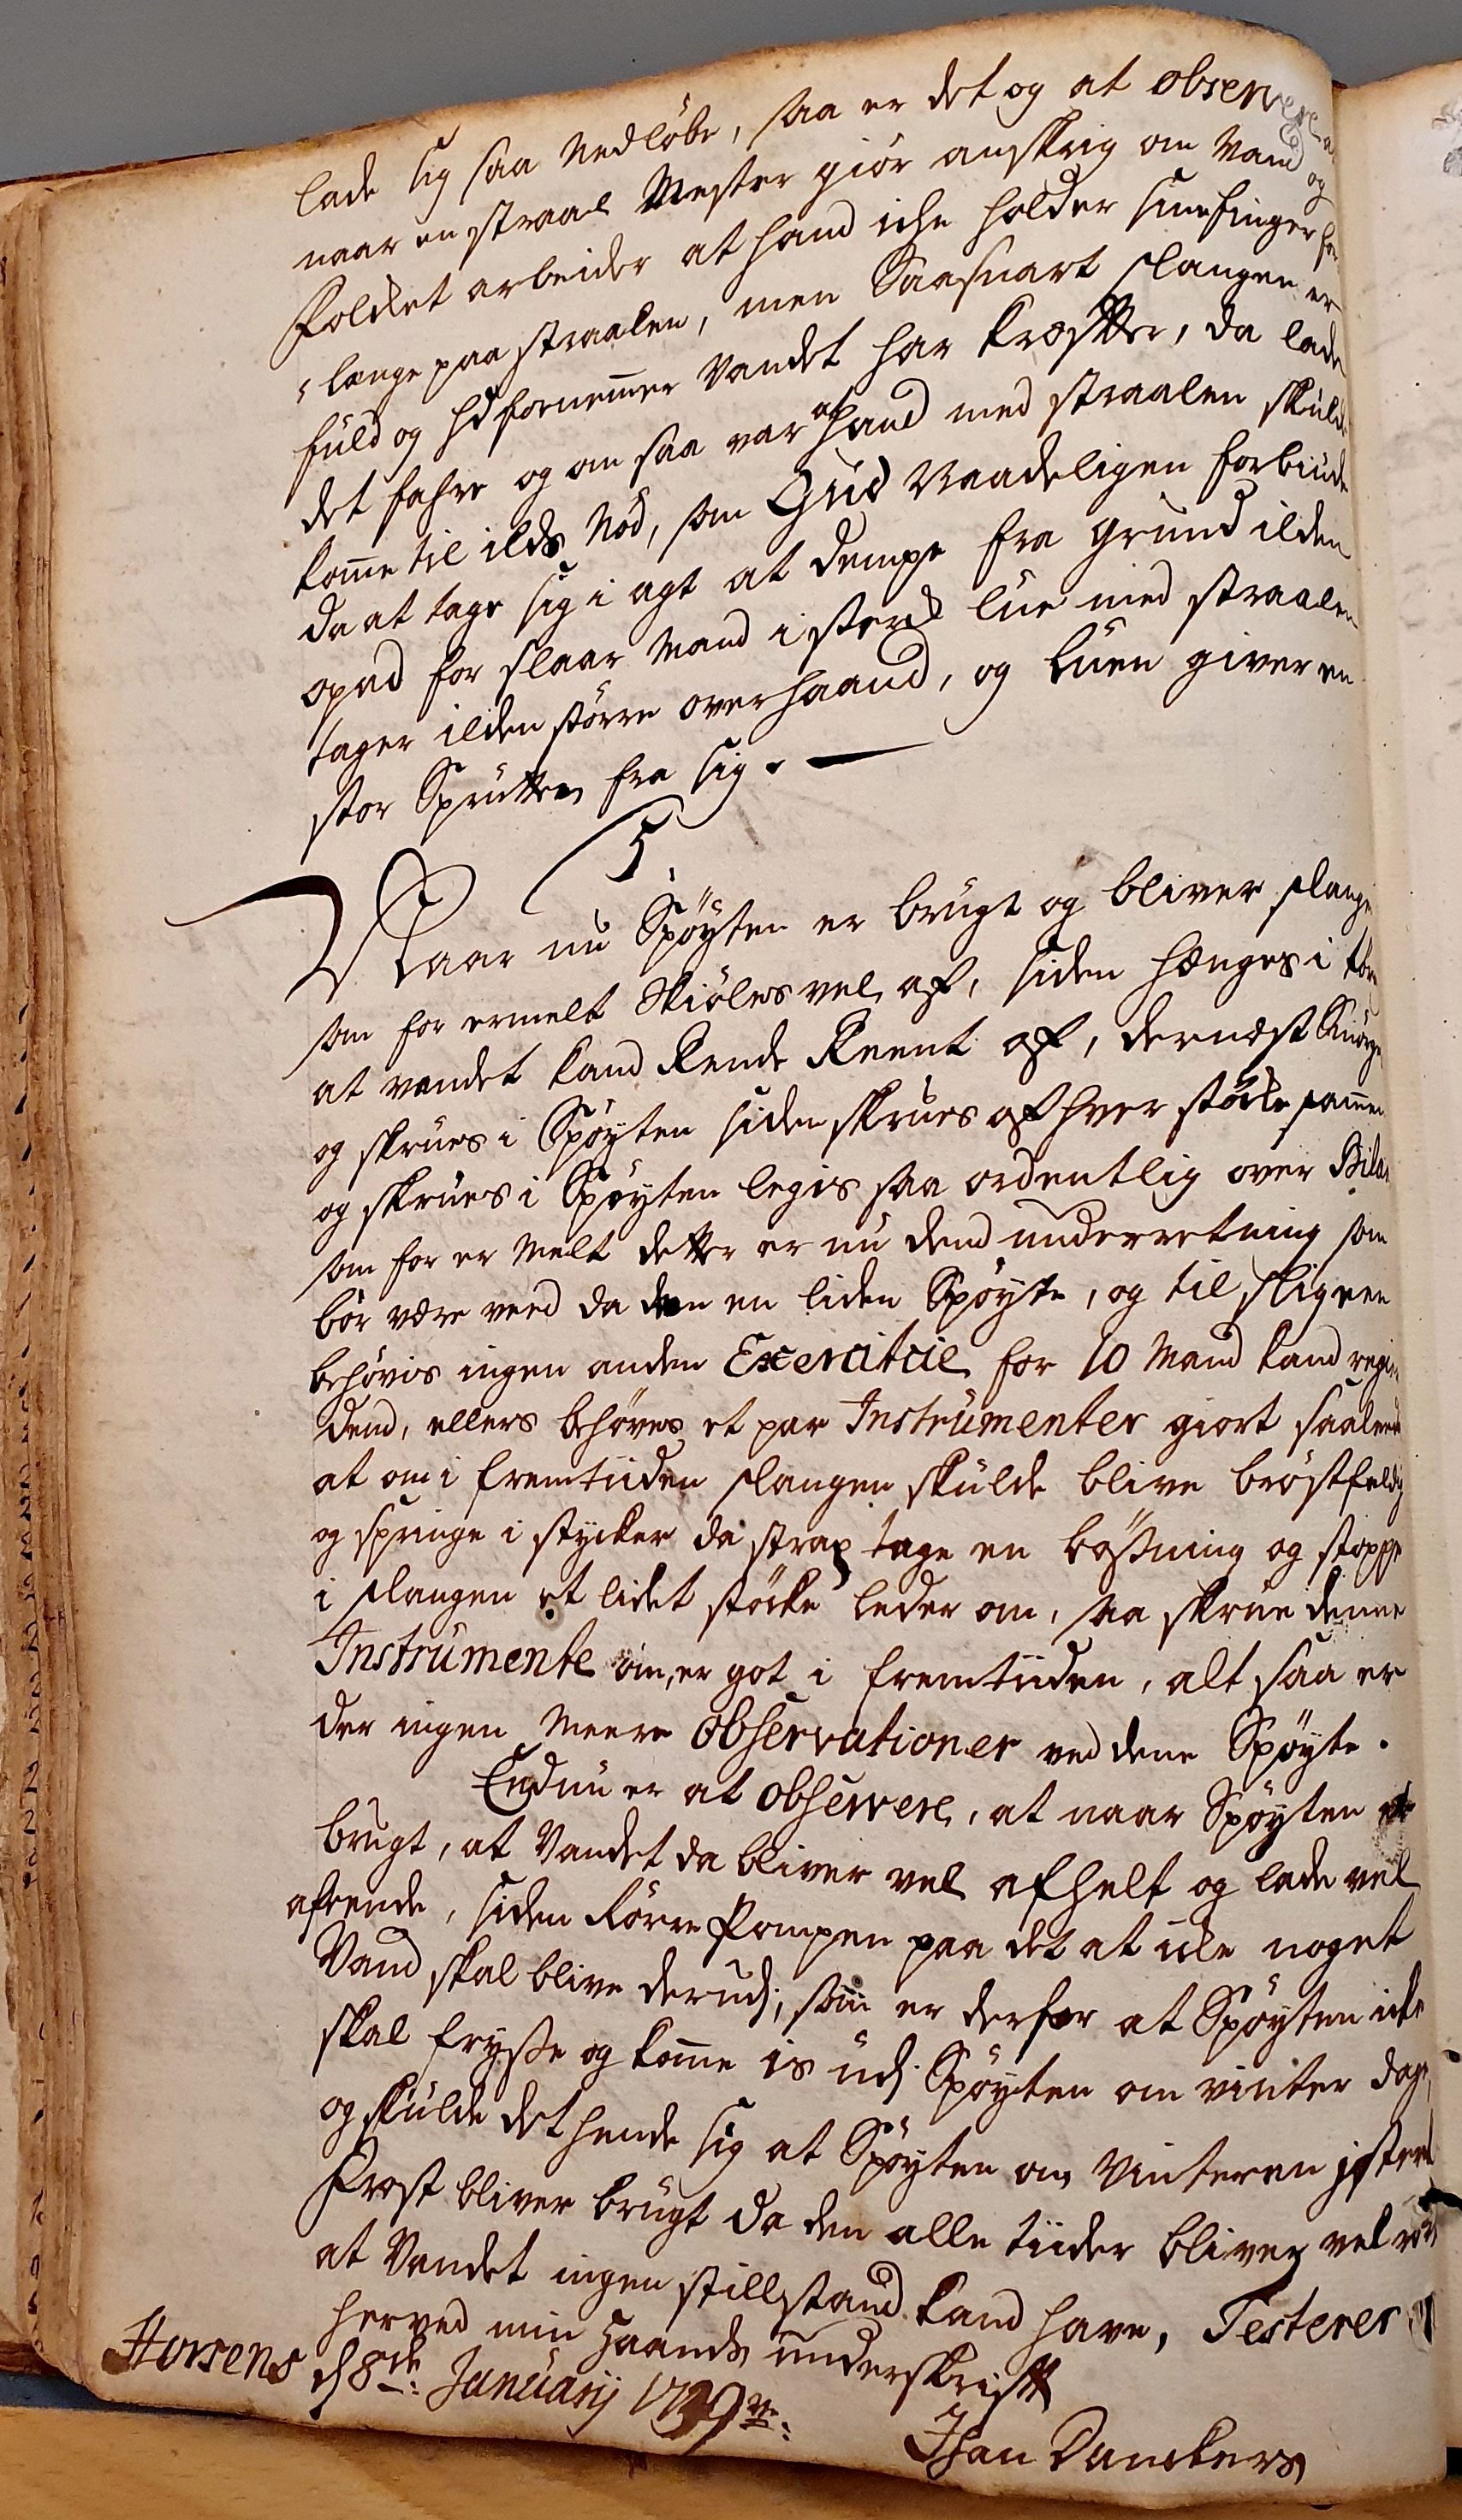 lade sig saa Nedløbe, saa er det og at observere
naar en straal Mester giør anskrig om Vand og
Folcket arbeider at hand icke holder sine finger for
længe paa straalen, men Saasnart slangen er
fuld og hd fornemmer Vandet har Kræfter, da lade
det fahre og om saa var at hand med straalen skulde
komme til ilds Nød, som Gud Naadeligen forbiude
da at tage sig i agt at dempe fra grund ilden
opad for slaar Mand i sterk lue med straalen
tager ilden større overhaand, og luen giver en
stor Sprutten fra sig.
5.
Naar nu Spøyten er brugt og bliver slange
som for ermelt Skiøles vel af, siden hænges i tør
at vandet kand Rende Reent af, dernæst Smørge
og skrues i Spøyten siden skrues af hver støcke sammen
og skrues i Spøyten legis saa ordentlig over
som for er Melt dette er nu dend underretning som
bør være ved da den en liden Spøyte, og til slig een
behøvis ingen anden Exercitcie for 10 Mand kand regi
dend, ellers behøves et par Instrumenter giort saaledes
at om i fremtiiden slangen skulde blive brøstfeldig
og springe i stycker da strax tage en bøsning og stoppe
i slangen et lidet støcke leder om, saa skrue denne
Instrumente om, er got i fremtiiden, alt saa er
der ingen Meere observationer ved denne Spøyte.
Endnu er at observere, at naar Spøyten er
brugt, at Vandet da bliver vel afhelt og lade vel
afrende, siden Rørre Pompen paa det at icke noget
Vand skal blive derudj, som er derfor at Spøyten icke
skal frysse og komme is udj Spøyten om vinter dage,
og skulde det hende sig at Spøyten om Vinteren j sterk
Frost bliver brugt da den alle tiider bliver vel rørt
at Vandet ingen stillstand kand have, Testerer
herved min Haands underskrifft
Horsens d 8de Januarij 1739
Than Dunckers